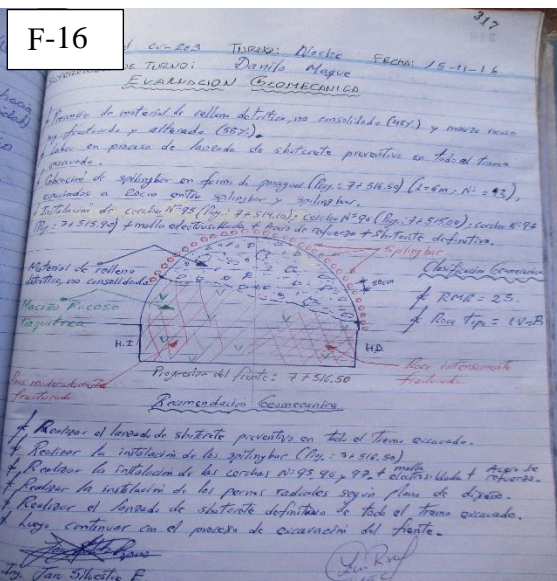 F-16
317
CV-203 TURNO: Noche FECHA: 15-11-16
DE TURNO: Danilo Maque
EVALUACION GEOMECANICA
de material de relleno detritico, no consolidado (45%) y macizo rocoso
fracturado y alterado (55%).
Labor en proceso de lanzado de shotcrete preventivo en todo el tramo
excavado.
de splingbar en forma de paraguas (Prog: 7+516,50) (L=6m, N°=23),
espaciados a 20cm entre splingbar y splingbar.
Instalación de cerchas N°95 (Prog: 7+514,10), cercha N°96 (Prog: 7+515,00), cercha N°97
(Prog: 7+515,90) + malla electrosoldada + Acero de refuerzo + Shotcrete definitivo.
Splingbar
Material de relleno
detritico, no consolidado
20cm
Clasificación Geomecanica
* RMR = 23.
* Roca tipo = IV-B
Macizo Rocoso
H.I
H.D
Roca intensamente
fracturada
Roca moderadamente
fracturada
Progresiva del frente: 7+516,50
Recomendación Geomecanica
* Realizar el lanzado de shotcrete preventivo en todo el tramo excavado.
* Realizar la instalación de los splingbar (Prog: 7+516,50)
* Realizar la instalación de las cerchas N°95, 96 y 97 + malla electrosoldada + Acero de refuerzo.
* Realizar la instalación de los pernos radiales según plano de diseño.
* Realizar el lanzado de shotcrete definitivo de todo el tramo excavado.
* Luego continuar con el proceso de excavación del frente.
Ing. Jan Silvestre E